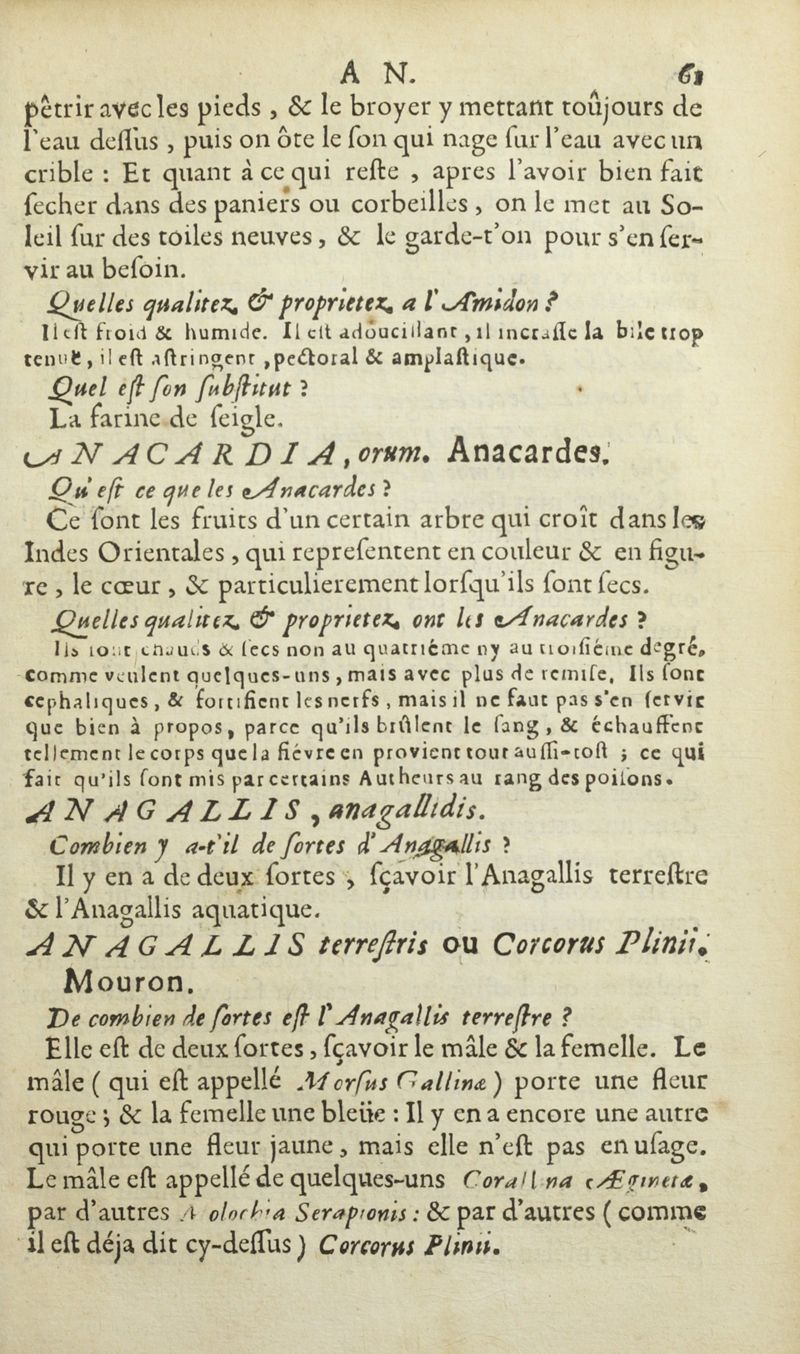 A N. 61
pêtrir avec les pieds , & le broyer y mettant toûjours de
l'eau deſſus , puis on ôte le ſon qui nage ſur l'eau avec un
crible : Et quant à ce qui reſte , apres l'avoir bien fait
ſecher dans des paniers ou corbeilles , on le met au So-
leil ſur des toiles neuves , & le garde-t'on pour s'en ſer-
vir au beſoin.
Quelles qualitez & proprietez a l'Amidon ?
Il eſt froid & humide. Il eſt adouciſſant , il incraſſe la bile trop
tenuë , il eſt aſtringent , pectoral & amplaſtique.
Quel eſt ſon ſubſtitut ?
La farine de ſeigle.
ANACARDIA, orum. Anacardes.
Qu'eſt ce que les Anacardes ?
Ce ſont les fruits d'un certain arbre qui croît dans les
Indes Orientales , qui repreſentent en couleur & en figu-
re , le cœur , & particulierement lorſqu'ils ſont ſecs.
Quelles qualitez & proprietez ont les Anacardes ?
Ils ſont chauds & ſecs non au quatriéme ny au troiſiéme degré,
comme veulent quelques-uns , mais avec plus de remiſe, Ils ſont
cephaliques , & fortifient les nerfs , mais il ne faut pas s'en ſervir
que bien à propos, parce qu'ils brûlent le ſang , & échauffent
tellement le corps que la fiévre en provient tout auſſi-toſt ; ce qui
fait qu'ils ſont mis par certains Autheurs au rang des poiſons.
ANAGALLIS , anagallidis.
Combien y a-t'il de ſortes d'Anagallis ?
Il y en a de deux ſortes , ſçavoir l'Anagallis terreſtre
& l'Anagallis aquatique.
ANAGALLIS terreſtris ou Corcorus Plinii.
Mouron.
De combien de ſortes eſt l'Anagallis terreſtre ?
Elle eſt de deux ſortes , ſçavoir le mâle & la femelle. Le
mâle ( qui eſt appellé Morſus Gallinæ ) porte une fleur
rouge ; & la femelle une bleüe : Il y en a encore une autre
qui porte une fleur jaune , mais elle n'eſt pas en uſage.
Le mâle eſt appellé de quelques-uns Corallina Ægineta ,
par d'autres Serapionis : & par d'autres ( comme
il eſt déja dit cy-deſſus ) Corcorus Plinii.